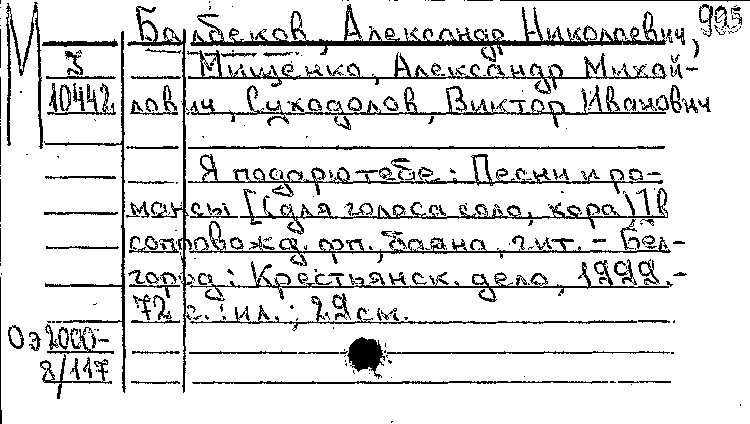 М
Балбеков, Александр Николаевич, 905
Мищенко, Александр Михай-
10442 лович, Суходолов, Виктор Иванович
Я подарю тебе: Песни и ро-
мансы [(для голоса соло, хора)] в
сопровожд. фп., баяна, гит. - Бел-
город: Крестьянск. дело, 1999.-
72 с.: ил.; 29 см.
Оэ 2000-
8/117